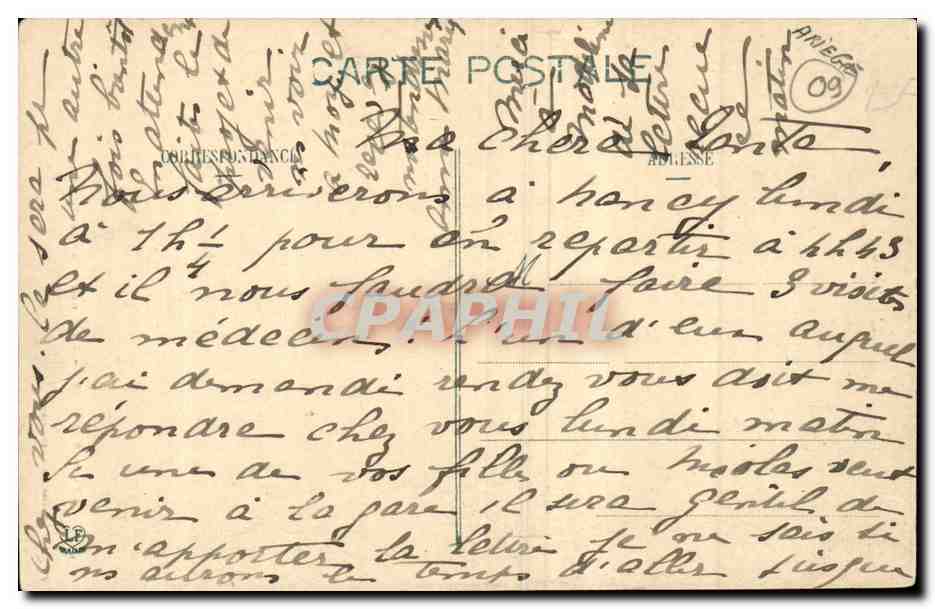 CARTE POSTALE
CORRESPONDANCE
ADRESSE
ARIEGE
09
Ma chère Tante,
Nous arriverons à Nancy lundi
à 1h 1/4 pour en repartir à 4h43
et il nous faudra faire 3 visites
de médecins. L'un d'eux auquel
j'ai demandé rendez vous doit me
répondre chez vous lundi matin
Si une de vos filles ou Nicolas veut
venir à la gare il sera gentil de
m'apporter la lettre je ne sais si
ns aurons le temps d'aller jusque
chez vous. Ce sera pr
une autre
fois bientôt
En attendant
projet de
venir
vous voir
CPAPHIL
LF